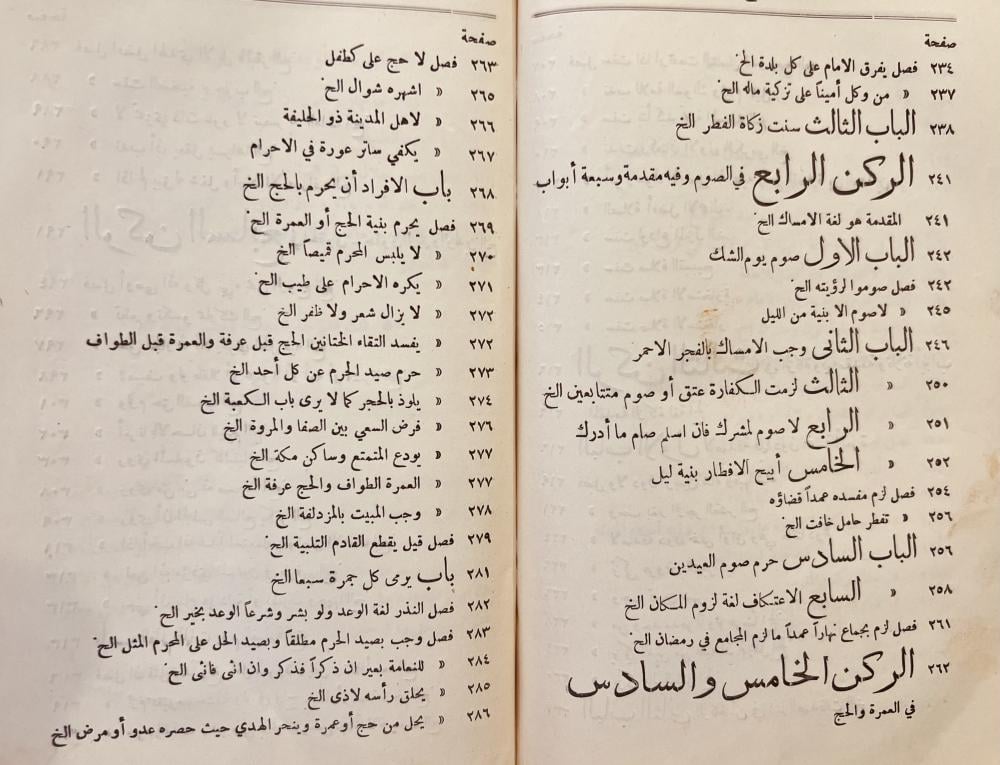 صفحة
٢٣٤ فصل يفرق الامام على كل بلدة الخ
٢٣٧ « من وكل أميناً على تزكية ماله الخ
٢٣٨ الباب الثالث سنت زكاة الفطر الخ
٢٤١ الركن الرابع في الصوم وفيه مقدمة وسبعة أبواب
٢٤١ المقدمة هو لغة الامساك الخ
٢٤٢ الباب الاول صوم يوم الشك
٢٤٢ فصل صوموا لرؤيته الخ
٢٤٥ « لاصوم الا بنية من الليل
٢٤٦ الباب الثانى وجب الامساك بالفجر الاحمر
٢٥٠ « الثالث لزمت الكفارة عتق أو صوم متتابعين الخ
٢٥١ « الرابع لا صوم لمشرك فان اسلم صام ما أدرك
٢٥٢ « الخامس أبيح الافطار بنية ليل
٢٥٤ فصل لزم مفسده عمداً قضاؤه
٢٥٦ « تفطر حامل خافت الخ
٢٥٦ الباب السادس حرم صوم العيدين
٢٥٨ « السابع الاعتكاف لغة لزوم المكان الخ
٢٦١ فصل لزم بجماع نهاراً عمداً ما لزم المجامع في رمضان الخ
٢٦٢ الركن الخامس والسادس
في العمرة والحج
صفحة
٢٦٣ فصل لا حج على كطفل
٢٦٥ « اشهره شوال الخ
٢٦٦ « لاهل المدينة ذو الحليفة
٢٦٧ « يكفي ساتر عورة في الاحرام
٢٦٨ باب الافراد أن يحرم بالحج الخ
٢٦٩ فصل يحرم بنية الحج أو العمرة الخ
٢٧٠ « لا يلبس المحرم قميصاً الخ
٢٧١ « يكره الاحرام على طيب الخ
٢٧٢ « لا يزال شعر ولا ظفر الخ
٢٧٢ « يفسد التقاء الختانين الحج قبل عرفة والعمرة قبل الطواف
٢٧٣ « حرم صيد الحرم عن كل أحد الخ
٢٧٤ « يلوذ بالحجر كما لا يرى باب الكعبة الخ
٢٧٦ « فرض السعي بين الصفا والمروة الخ
٢٧٧ « يودع المتمتع وساكن مكة الخ
٢٧٧ « العمرة الطواف والحج عرفة الخ
٢٧٨ « وجب المبيت بالمزدلفة الخ
٢٧٩ فصل قيل يقطع القادم التلبية الخ
٢٨١ باب يرمى كل جمرة سبعا الخ
٢٨٢ فصل النذر لغة الوعد ولو بشر وشرعاً الوعد بخير الخ
٢٨٣ فصل وجب بصيد الحرم مطلقاً وبصيد الحل على المحرم المثل الخ
٢٨٤ « للنعامة بعير ان ذكراً فذكر وان انثى فانثى الخ
٢٨٥ « يحلق رأسه لاذى الخ
٢٨٦ « يحل من حج أو عمرة وينحر الهدي حيث حصره عدو أو مرض الخ